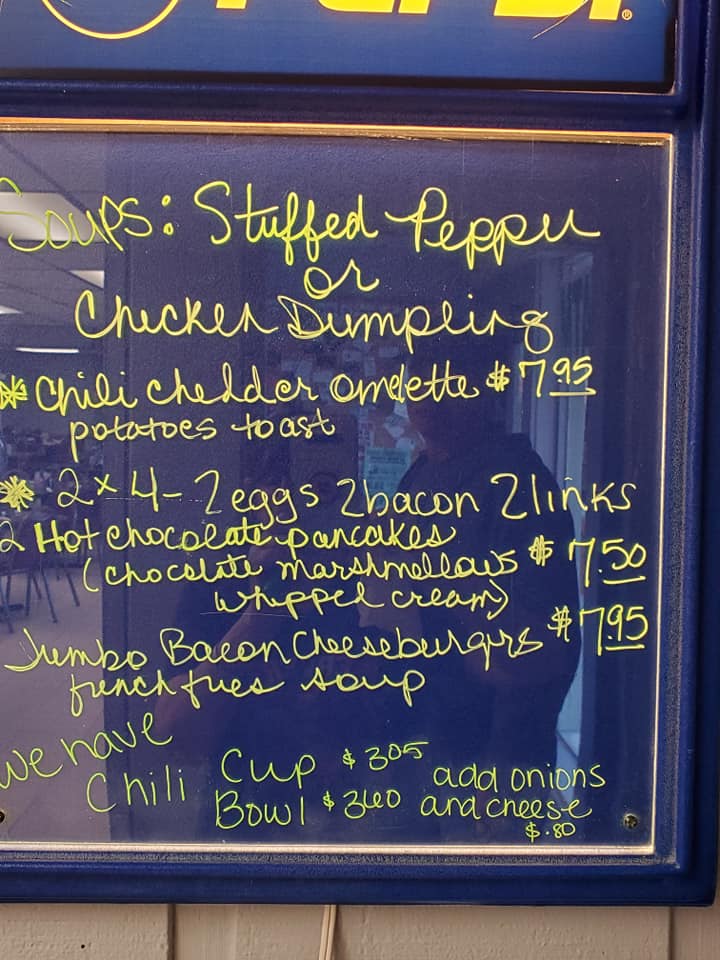 PEPSI®
Soups: Stuffed Pepper
or
Chicken Dumpling
* Chili chedder omelette $7.95
potatoes toast
* 2x4- 2eggs 2bacon 2links
2 Hot chocolate pancakes
(chocolate marshmellows $7.50
whipped cream)
Jumbo Bacon Cheeseburgers $7.95
french fries soup
We have
Chili Cup $3.05 add onions
Bowl $3.60 and cheese
$.80